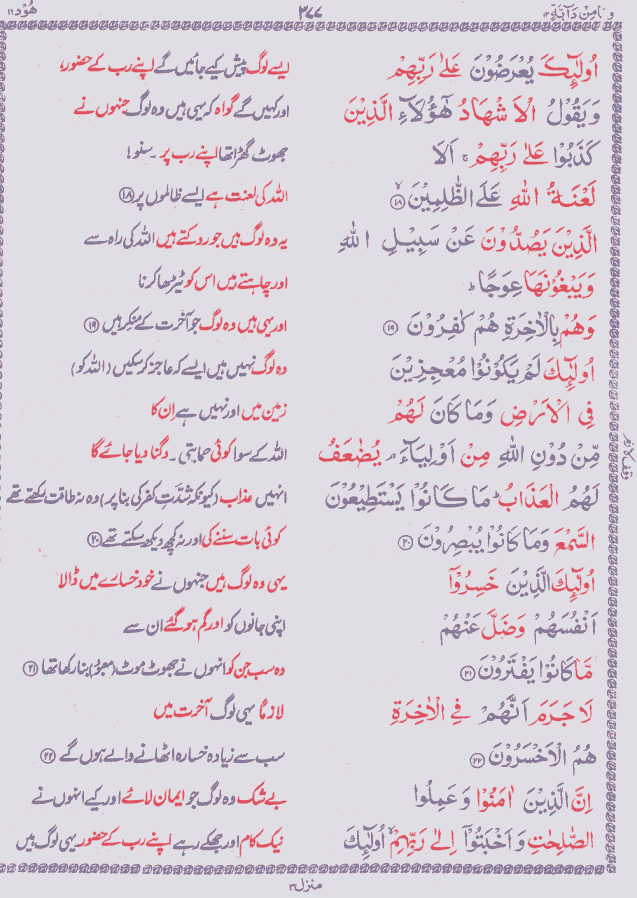 وما من دآبة ١٢ ٣٧٧ هُوْد ١١
اُولٰٓئِكَ يُعْرَضُوْنَ عَلٰى رَبِّهِمْ ایسے لوگ پیش کیے جائیں گے اپنے رب کے حضور،
وَيَقُوْلُ الْاَشْهَادُ هٰٓؤُلَآءِ الَّذِيْنَ اور کہیں گے گواہ کہ یہی ہیں وہ لوگ جنہوں نے
كَذَبُوْا عَلٰى رَبِّهِمْ ۚ اَلَا جھوٹ گھڑا تھا اپنے رب پر ۔ سنو!
لَعْنَةُ اللّٰهِ عَلَى الظّٰلِمِيْنَ ۙ ﴿۱۸﴾ اللہ کی لعنت ہے ایسے ظالموں پر ﴿۱۸﴾
الَّذِيْنَ يَصُدُّوْنَ عَنْ سَبِيْلِ اللّٰهِ یہ وہ لوگ ہیں جو روکتے ہیں اللہ کی راہ سے
وَيَبْغُوْنَهَا عِوَجًا ؕ اور چاہتے ہیں اس کو ٹیڑھا کرنا
وَهُمْ بِالْاٰخِرَةِ هُمْ كٰفِرُوْنَ ﴿۱۹﴾ اور یہی ہیں وہ لوگ جو آخرت کے منکر ہیں ﴿۱۹﴾
اُولٰٓئِكَ لَمْ يَكُوْنُوْا مُعْجِزِيْنَ وہ لوگ نہیں ہیں ایسے کہ عاجز کر سکیں (اللہ کو)
فِى الْاَرْضِ وَمَا كَانَ لَهُمْ زمین میں اور نہیں ہے ان کا
مِّنْ دُوْنِ اللّٰهِ مِنْ اَوْلِيَآءَ ۘ يُضٰعَفُ اللہ کے سوا کوئی حمایتی ۔ دگنا دیا جائے گا
لَهُمُ الْعَذَابُ ؕ مَا كَانُوْا يَسْتَطِيْعُوْنَ انہیں عذاب (کیونکہ شدّتِ کفر کی بنا پر) وہ نہ طاقت رکھتے تھے
السَّمْعَ وَمَا كَانُوْا يُبْصِرُوْنَ ﴿۲۰﴾ کوئی بات سننے کی اور نہ کچھ دیکھ سکتے تھے ﴿۲۰﴾
اُولٰٓئِكَ الَّذِيْنَ خَسِرُوْٓا یہی وہ لوگ ہیں جنہوں نے خود خسارے میں ڈالا
اَنْفُسَهُمْ وَضَلَّ عَنْهُمْ اپنی جانوں کو اور گم ہو گئے ان سے
مَّا كَانُوْا يَفْتَرُوْنَ ﴿۲۱﴾ وہ سب جن کو انہوں نے جھوٹ موٹ (معبود) بنا رکھا تھا ﴿۲۱﴾
لَا جَرَمَ اَنَّهُمْ فِى الْاٰخِرَةِ لازماً یہی لوگ آخرت میں
هُمُ الْاَخْسَرُوْنَ ﴿۲۲﴾ سب سے زیادہ خسارہ اٹھانے والے ہوں گے ﴿۲۲﴾
اِنَّ الَّذِيْنَ اٰمَنُوْا وَعَمِلُوا بے شک وہ لوگ جو ایمان لائے اور کیے انہوں نے
الصّٰلِحٰتِ وَاَخْبَتُوْٓا اِلٰى رَبِّهِمْ ۙ اُولٰٓئِكَ نیک کام اور جھکے رہے اپنے رب کے حضور یہی لوگ ہیں
منزل ٣